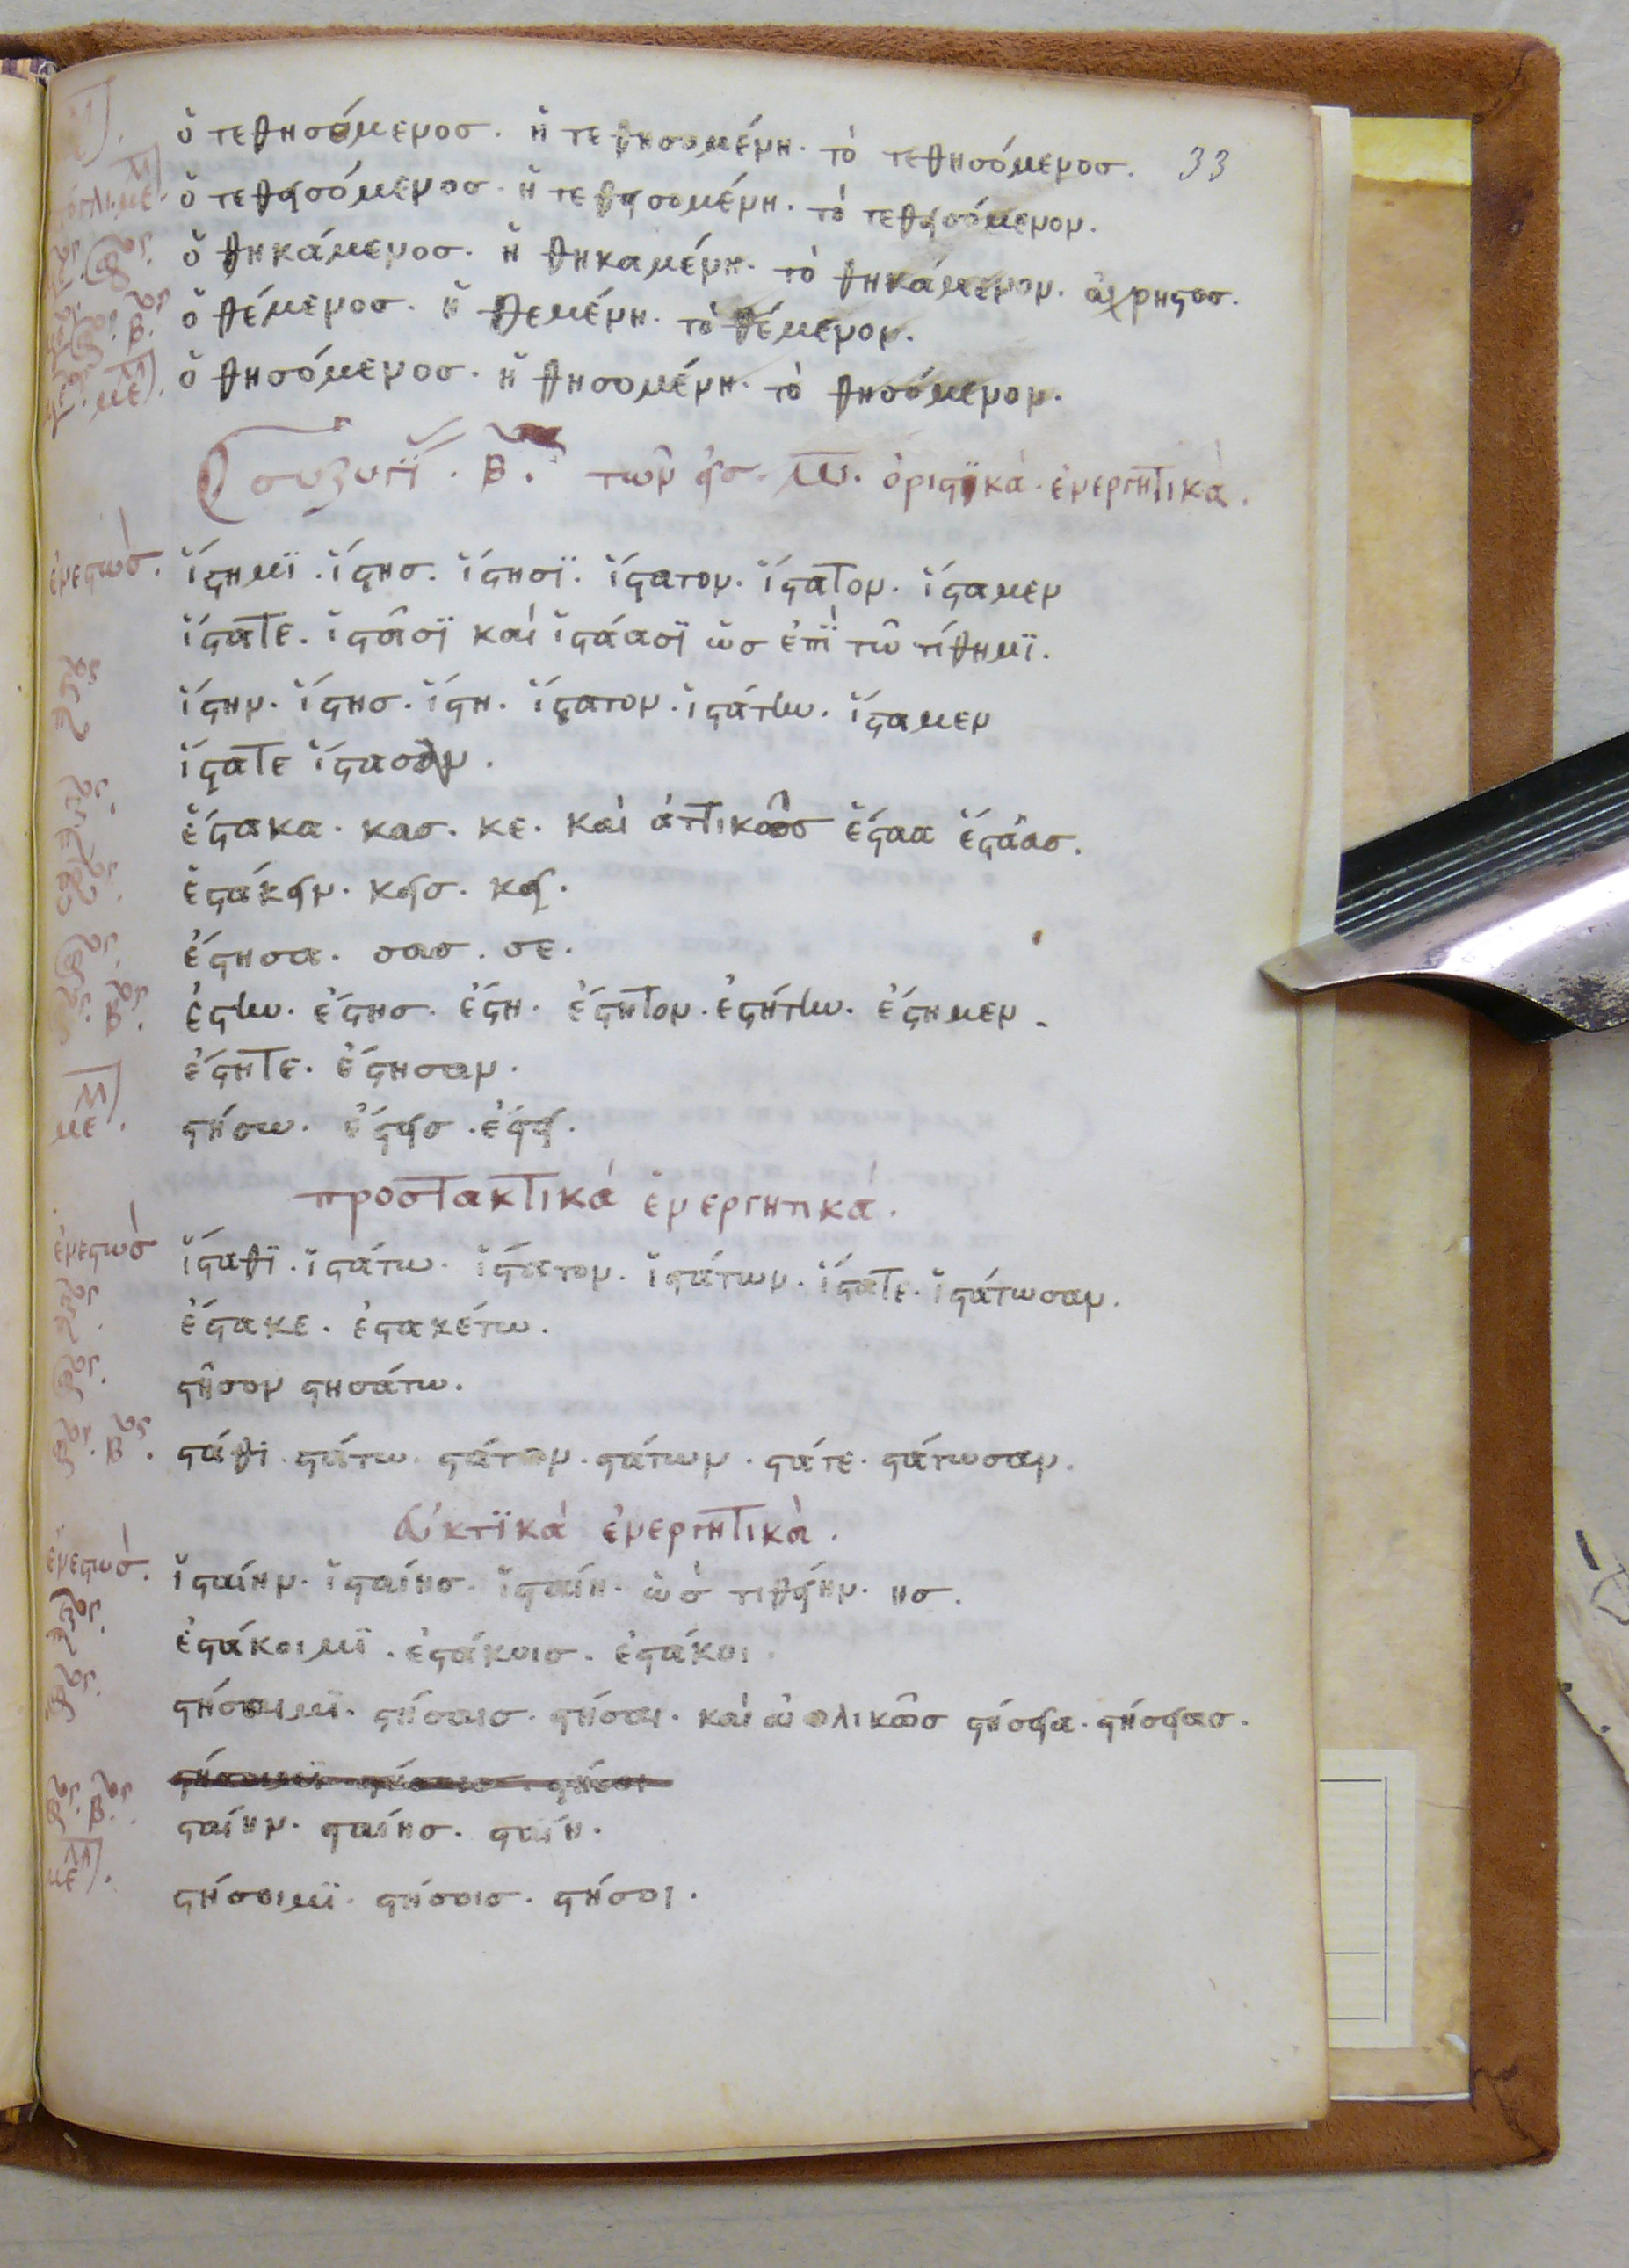 ὁ τεθησόμενος. ἡ τεθησομένη. τὸ τεθησόμενος. 33
ὁ τεθεισόμενος. ἡ τεθεισομένη. τὸ τεθεισόμενον.
ὁ θηκάμενος. ἡ θηκαμένη. τὸ θηκάμενον. ἄχρηστος.
ὁ θέμενος. ἡ θεμένη. τὸ θέμενον.
ὁ θησόμενος. ἡ θησομένη. τὸ θησόμενον.
συζυγϊ. Β. τῶν εἰς μι. ὁριστϊκὰ. ἐνεργητικὰ.
ἐνεστὼς. ἵστημϊ. ἵστης. ἵστησϊ. ἵστατον. ἵστατον. ἵσταμεν
ἵστατε. ἱστᾶσϊ καὶ ἱστάασϊ ὡς ἐπϊ τῶ τίθημϊ.
ἵστην. ἵστης. ἵστη. ἵστατον. ἱστάτην. ἵσταμεν
ἵστατε ἵστασαν.
ἕστακα. κας. κε. καὶ ἀττικῶς ἕσταα ἕστάας.
ἑστάκειν. κεις. κει.
ἔστησα. σας. σε.
ἔστην. ἔστης. ἔστη. ἔστητον. ἐστήτην. ἔστημεν.
ἔστητε. ἔστησαν.
στήσω. ἔστεις. ἔστει.
προστακτικά ἐνεργητικα.
ἐνεστὼς ἵσταθϊ. ἱστάτω. ἵστατον. ἱστάτων. ἵστατε. ἱστάτωσαν.
ἔστακε. ἑστακέτω.
στῆσον στησάτω.
στάθι. στάτω. στάτον. στάτων. στάτε. στάτωσαν.
εὐκτϊκὰ ἐνεργητικὰ.
ἐνεστὼς. ἱσταίην. ἱσταίης. ἱσταίη. ὡς τιθείην. ης.
ἑστάκοιμϊ. ἑστάκοις. ἑστάκοι.
στήσαιμϊ. στήσαις. στήσαι. καὶ αἰολικῶς στήσεια. στήσειας.
σταίην. σταίης. σταίη.
στήσοιμϊ. στήσοις. στήσοι.